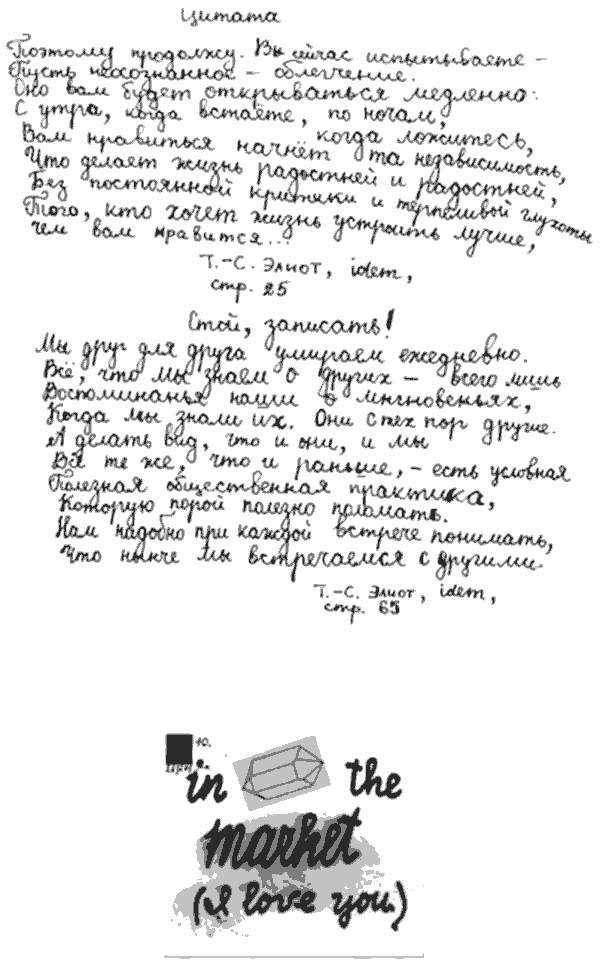 Цитата
Поэтому продолжу. Вы сейчас испытываете –
Пусть неосознанное – облегчение.
Оно вам будет открываться медленно:
С утра, когда встаёте, по ночам,
когда ложитесь,
Вам нравиться начнёт та независимость,
Что делает жизнь радостней и радостней,
Без постоянной критики и терпеливой глухоты
Того, кто хочет жизнь устроить лучше,
Чем вам нравится...
Т.-С. Элиот, idem,
стр. 25
Стой, записать!
Мы друг для друга умираем ежедневно.
Всё, что мы знаем о других – всего лишь
Воспоминанья наши о мгновеньях,
Когда мы знали их. Они с тех пор другие.
А делать вид, что и они, и мы
Всё те же, что и раньше, – есть условная
Полезная общественная практика,
Которую порой полезно поломать.
Нам надобно при каждой встрече понимать,
Что нынче мы встречаемся с другими.
Т.-С. Элиот, idem,
стр. 65
10.
in the
market
(I love you.)